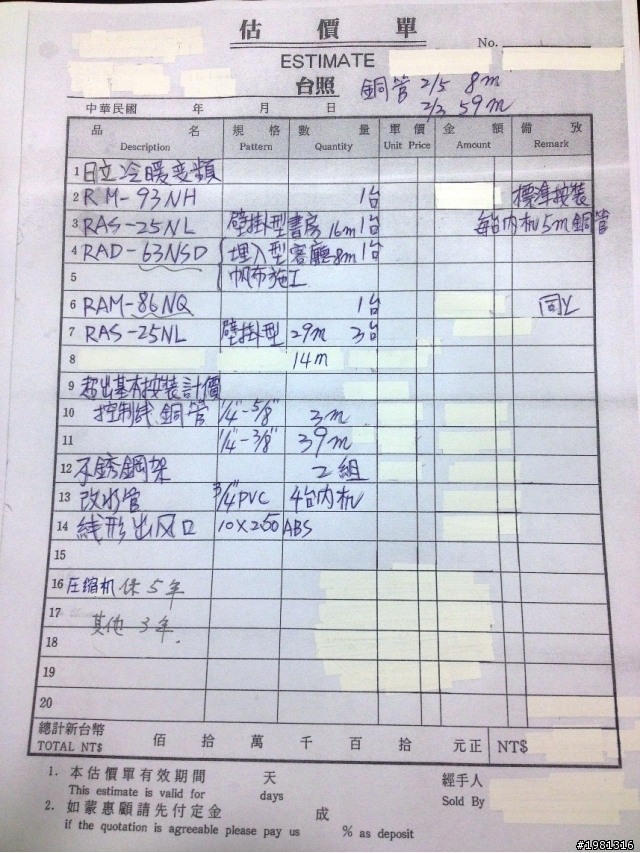 估價單
ESTIMATE
No.
台照
銅管 2/5 8m
2/3 59m
中華民國 年 月 日
品名 規格 數量 單價 金額 備攷
Description Pattern Quantity Unit Price Amount Remark
1 日立冷暖変頻
2 RM-93NH 1台 標準按裝
3 RAS-25NL 壁掛型 書房 16m 1台 每台内机5m銅管
4 RAD-63NSD 埋入型 客廳 8m 1台
5 帆布施工
6 RAM-86NQ 1台 同上
7 RAS-25NL 壁掛型 29m 3台
8 14m
9 超出基本按裝計價
10 控制线 銅管 1/4"-5/8" 3m
11 1/4"-3/8" 39m
12 不銹鋼架 2組
13 改水管 3/4"PVC 4台内机
14 线形出风口 10X250 ABS
15
16 圧缩机保5年
17 其他 3年.
18
19
20
總計新台幣
TOTAL NT$ 佰 拾 萬 千 百 拾 元正 NT$
1. 本估價單有效期間 天 經手人
This estimate is valid for days Sold By
2. 如蒙惠顧請先付定金 成
if the quotation is agreeable please pay us % as deposit
#1981316